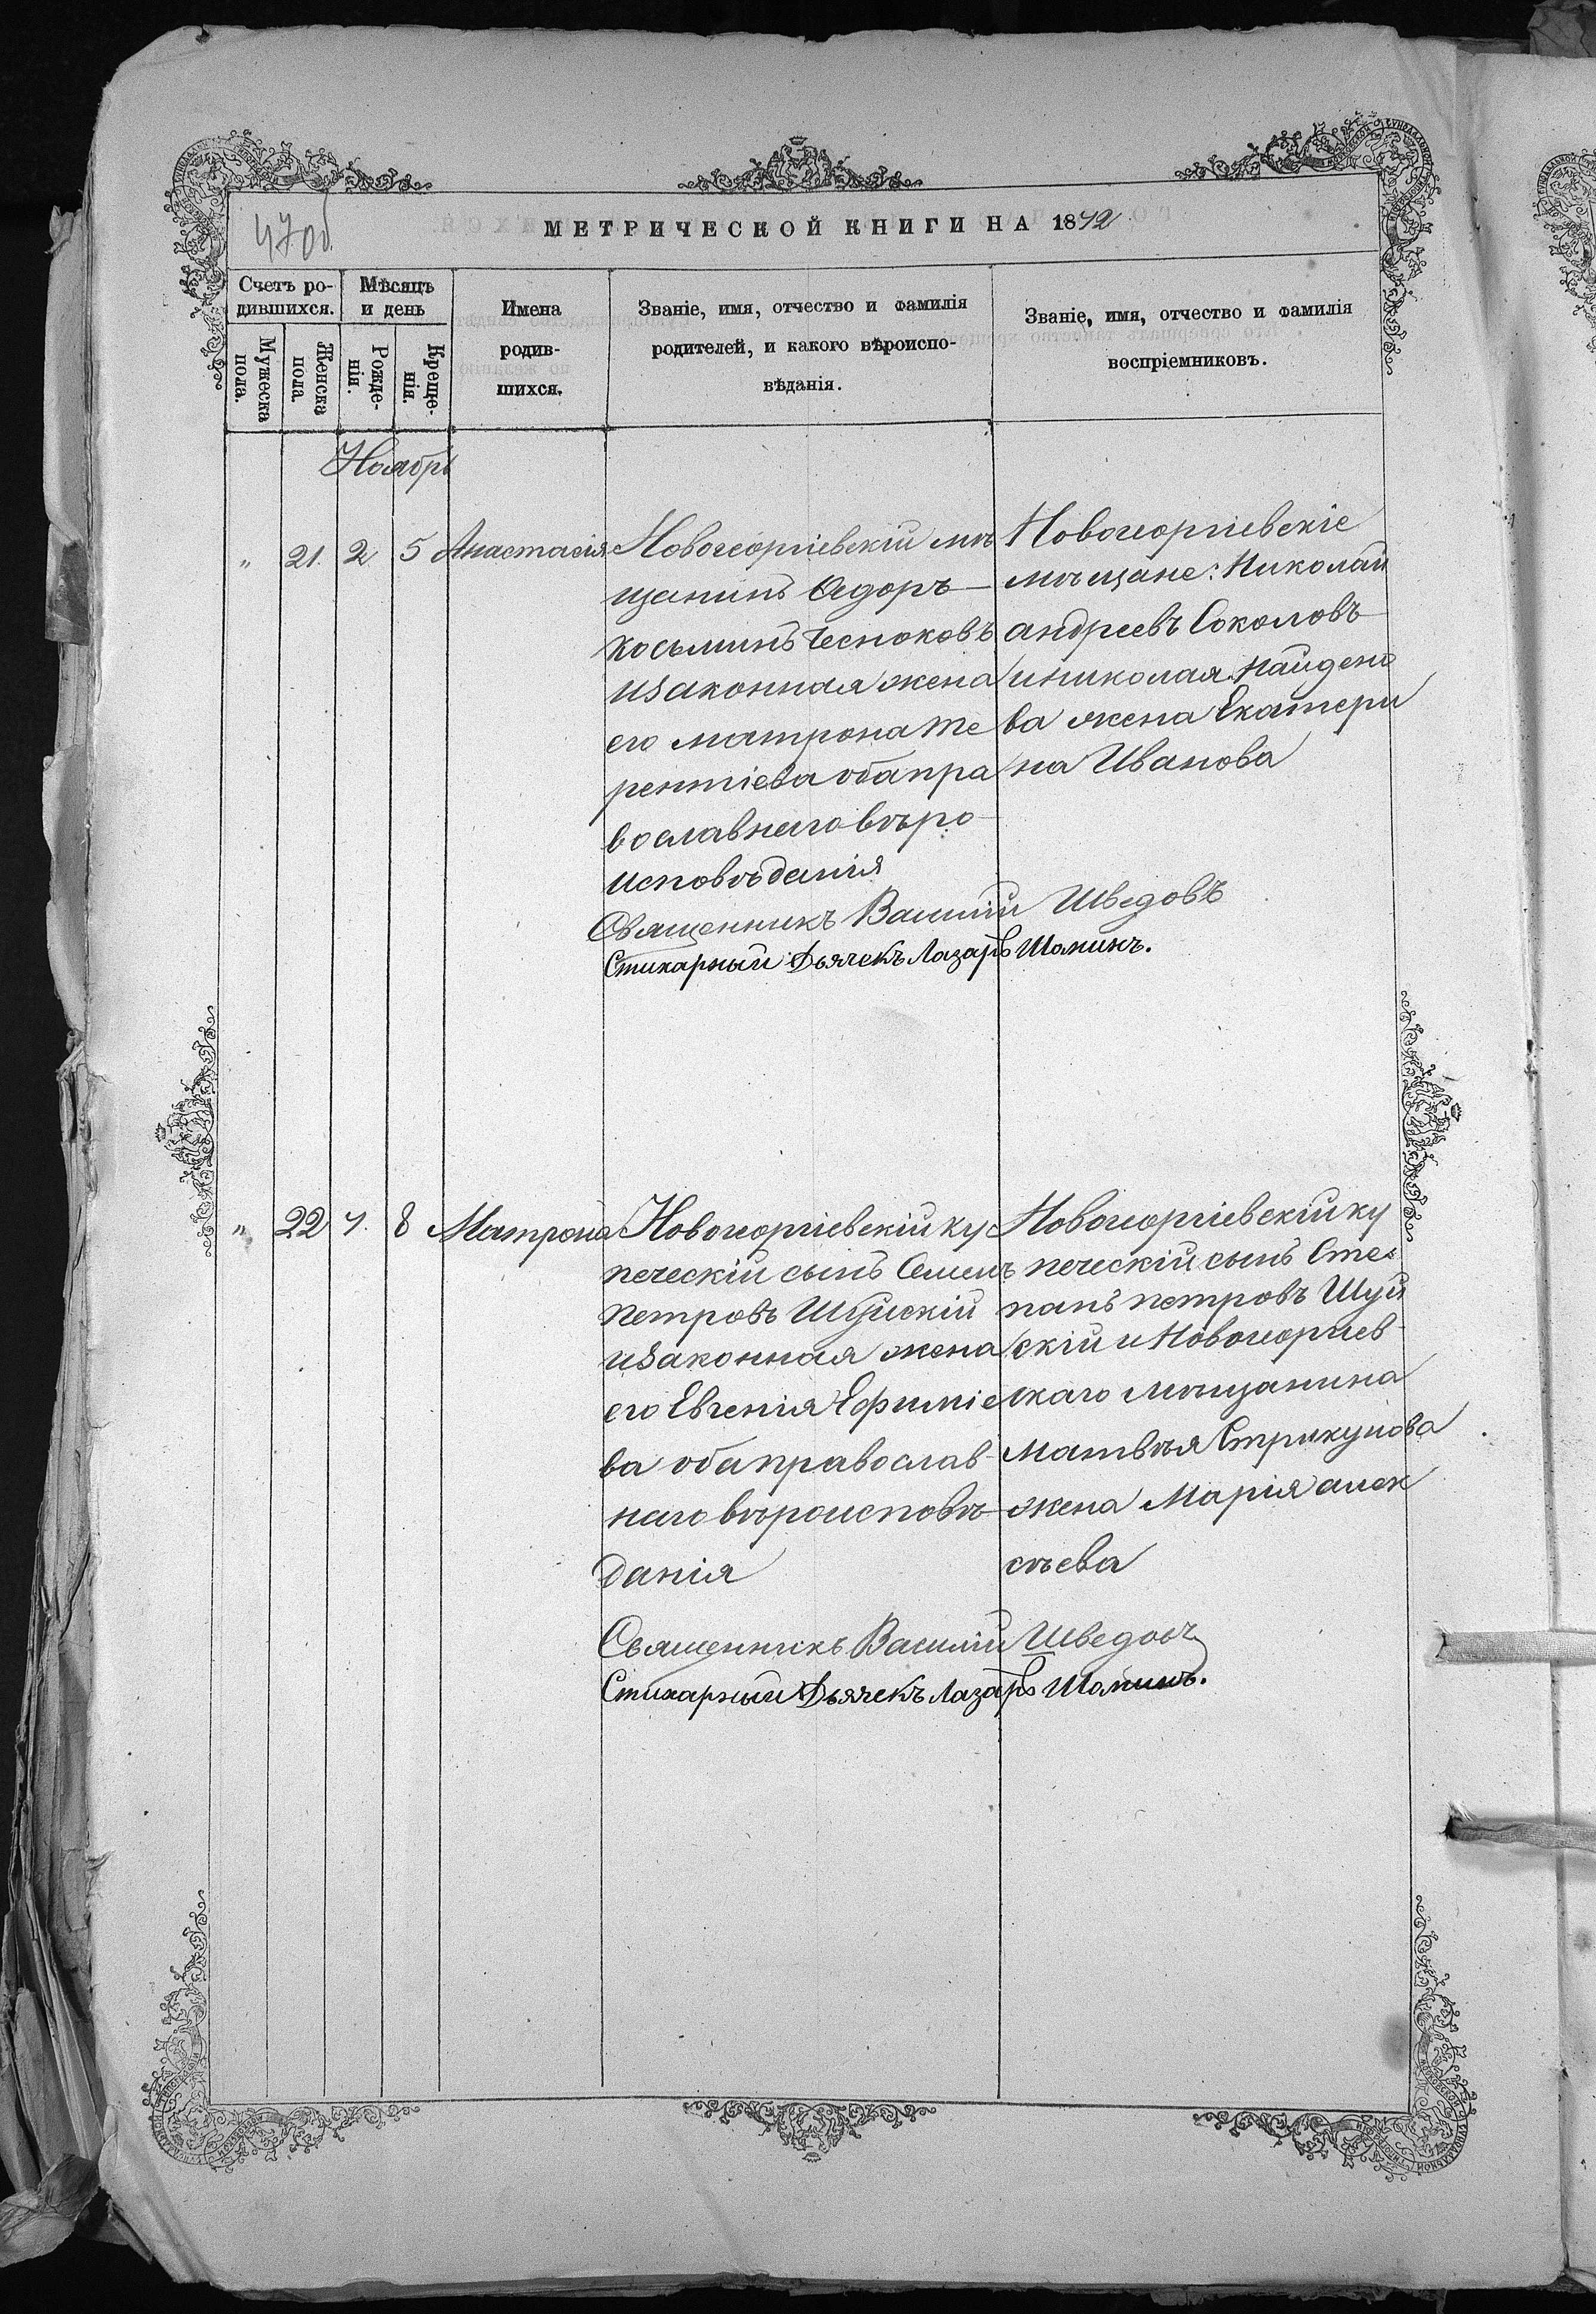 47об.
МЕТРИЧЕСКОЙ КНИГИ НА 1872
Счетъ ро-
дившихся.
Мѣсяцъ
и день
Мужеска
пола.
Женска
пола.
Рожде-
нія.
Креще-
нія.
Имена
родив-
шихся.
Званіе, имя, отчество и фамилія
родителей, и какого вѣроиспо-
вѣданія.
Званіе, имя, отчество и фамилія
воспріемниковъ.
Ноябрь
„ 21. 2 5 Анастасія
Новогеоргіевскій мѣ
щанинъ Ѳедоръ
Косьминъ Чесноковъ
и законная жена
его матрона Те
рентіева оба пра
вославнаго вѣро-
исповѣданія
Новогеоргіевскіе
мѣщане: Николай
андреевъ Соколовъ
и николая Найдено
ва жена Екатери
на Иванова
Священникъ Василій Шведовъ
Стихарный Дьячекъ Лазарь Шаминъ.
„ 22 7. 8 Матрона
Новогеоргіевскій ку
печескій сынъ Семенъ
Петровъ Шуйскій
и законная жена
его Евгенія Ефиміе
ва оба православ-
наго вѣроисповѣ-
данія
Новогеоргіевскій ку
печескій сынъ Сте-
панъ петровъ Шуй
скій и Новогеоргіев-
скаго мѣщанина
Матвѣя Стрикунова
жена Марія алек
сѣева
Священникъ Василій Шведовъ
Стихарный Дьячекъ Лазарь Шаминъ.